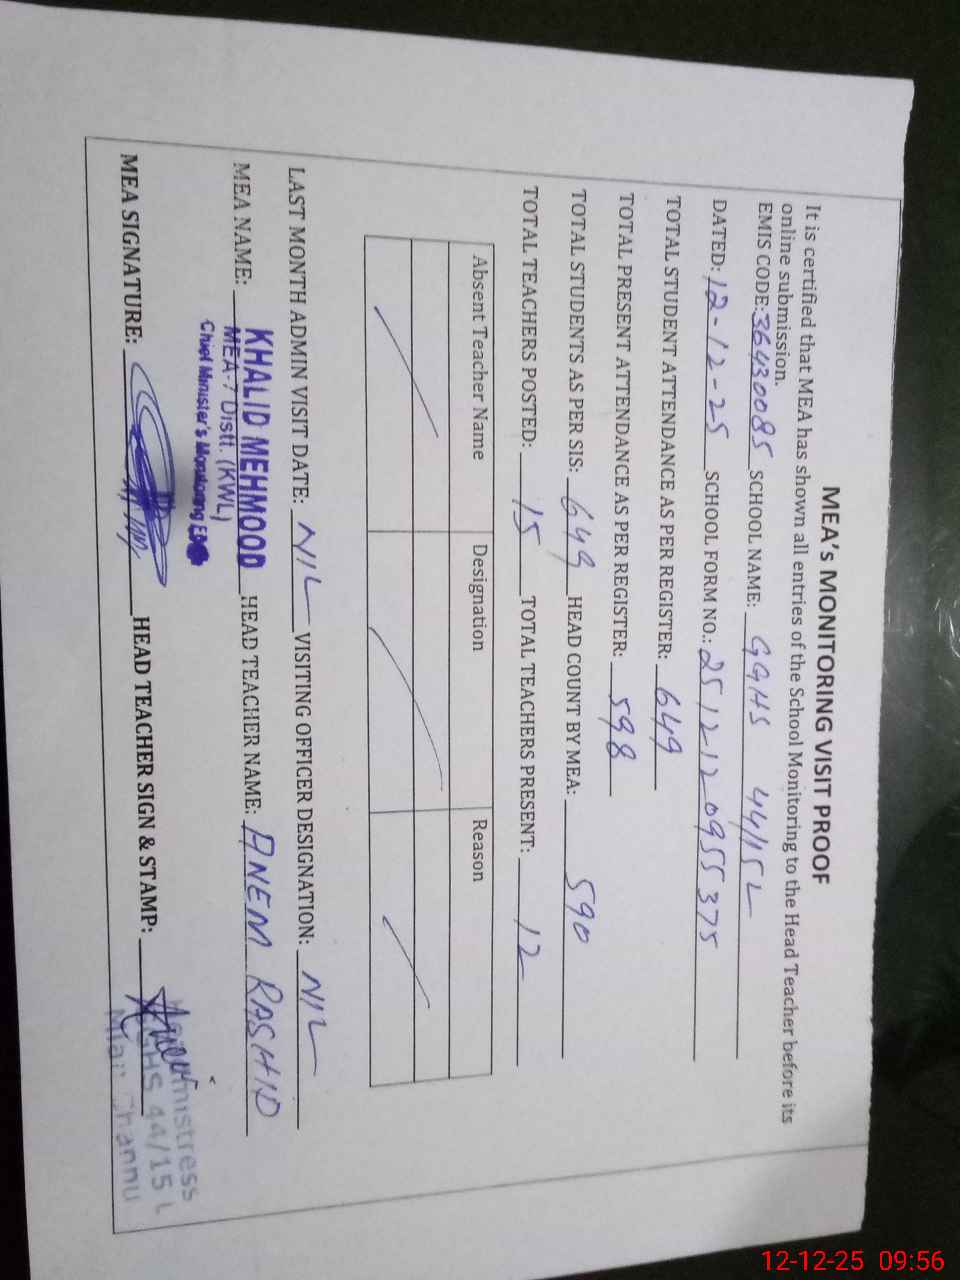 MEA's MONITORING VISIT PROOF
It is certified that MEA has shown all entries of the School Monitoring to the Head Teacher before its
online submission.
EMIS CODE: 36430085 SCHOOL NAME: GGHS 44/15L
DATED: 12-12-25 SCHOOL FORM NO.: 2512120955375
TOTAL STUDENT ATTENDANCE AS PER REGISTER: 649
TOTAL PRESENT ATTENDANCE AS PER REGISTER: 598
TOTAL STUDENTS AS PER SIS: 649 HEAD COUNT BY MEA: 590
TOTAL TEACHERS POSTED: 15 TOTAL TEACHERS PRESENT: 12
Absent Teacher Name Designation Reason
LAST MONTH ADMIN VISIT DATE: NIL VISITING OFFICER DESIGNATION: NIL
MEA NAME: KHALID MEHMOOD HEAD TEACHER NAME: ANEM RASHID
MEA-7 Distt. (KWL)
Chief Minister's Monitoring
MEA SIGNATURE: HEAD TEACHER SIGN & STAMP:
44/15 L
Channu
12-12-25 09:56